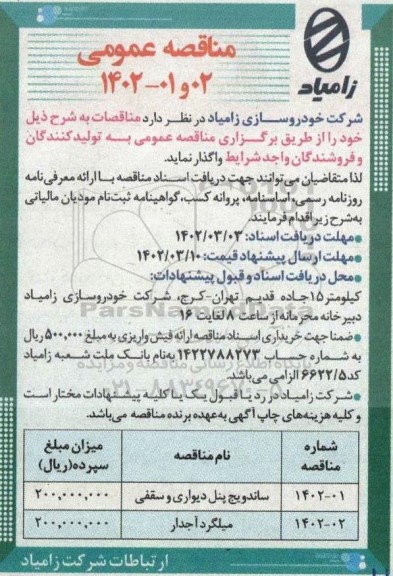 زامیاد
مناقصه عمومی
۰۲ و ۰۱-۱۴۰۲
شرکت خودروسازی زامیاد در نظر دارد مناقصات به شرح ذیل
خود را از طریق برگزاری مناقصه عمومی به تولیدکنندگان
و فروشندگان واجد شرایط واگذار نماید.
لذا متقاضیان می‌توانند جهت دریافت اسناد مناقصه با ارائه معرفی‌نامه
روزنامه رسمی، اساسنامه، پروانه کسب، گواهینامه ثبت‌نام مودیان مالیاتی
به‌شرح زیر اقدام فرمایند.
●مهلت دریافت اسناد: ۱۴۰۲/۰۳/۰۳
●مهلت ارسال پیشنهاد قیمت: ۱۴۰۲/۰۳/۱۰
●محل دریافت اسناد و قبول پیشنهادات:
کیلومتر۱۵ جاده قدیم تهران-کرج، شرکت خودروسازی زامیاد
دبیرخانه محرمانه از ساعت ۸ لغایت ۱۶
●ضمنا جهت خریداری اسناد مناقصه ارائه فیش واریزی به مبلغ ۵۰۰,۰۰۰ ریال
به شماره حساب ۱۴۲۲۷۸۸۲۷۳ به‌نام بانک ملت شعبه زامیاد
کد ۶۶۲۲/۵ الزامی می‌باشد.
●شرکت زامیاد در رد یا قبول یک یا کلیه پیشنهادات مختار است
و کلیه هزینه‌های چاپ آگهی به‌عهده برنده مناقصه می‌باشد.
شماره مناقصه	نام مناقصه	میزان مبلغ سپرده(ریال)
۱۴۰۲-۰۱	ساندویچ پنل دیواری و سقفی	۲۰۰,۰۰۰,۰۰۰
۱۴۰۲-۰۲	میلگرد آجدار	۲۰۰,۰۰۰,۰۰۰
ارتباطات شرکت زامیاد